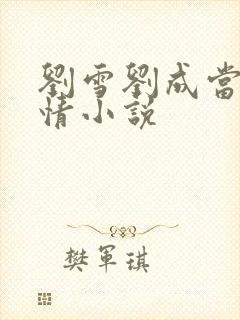 劉雪劉成當
情小説
樊軍琪